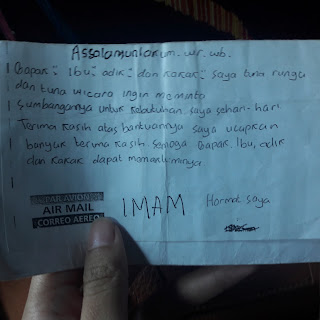 Assalamuniakum. wr. wb.
Bapak", Ibu", adik", dan kakak", saya tuna rungu
dan tuna wicara ingin meminta
Sumbangannya untuk kebutuhan saya sehari-hari
Terima kasih atas bantuannya saya ucapkan
banyak terima kasih. Semoga Bapak. Ibu, adik
dan kakak dapat memakluminya
PAR AVION
AIR MAIL
CORREO AEREO
IMAM
Hormat saya